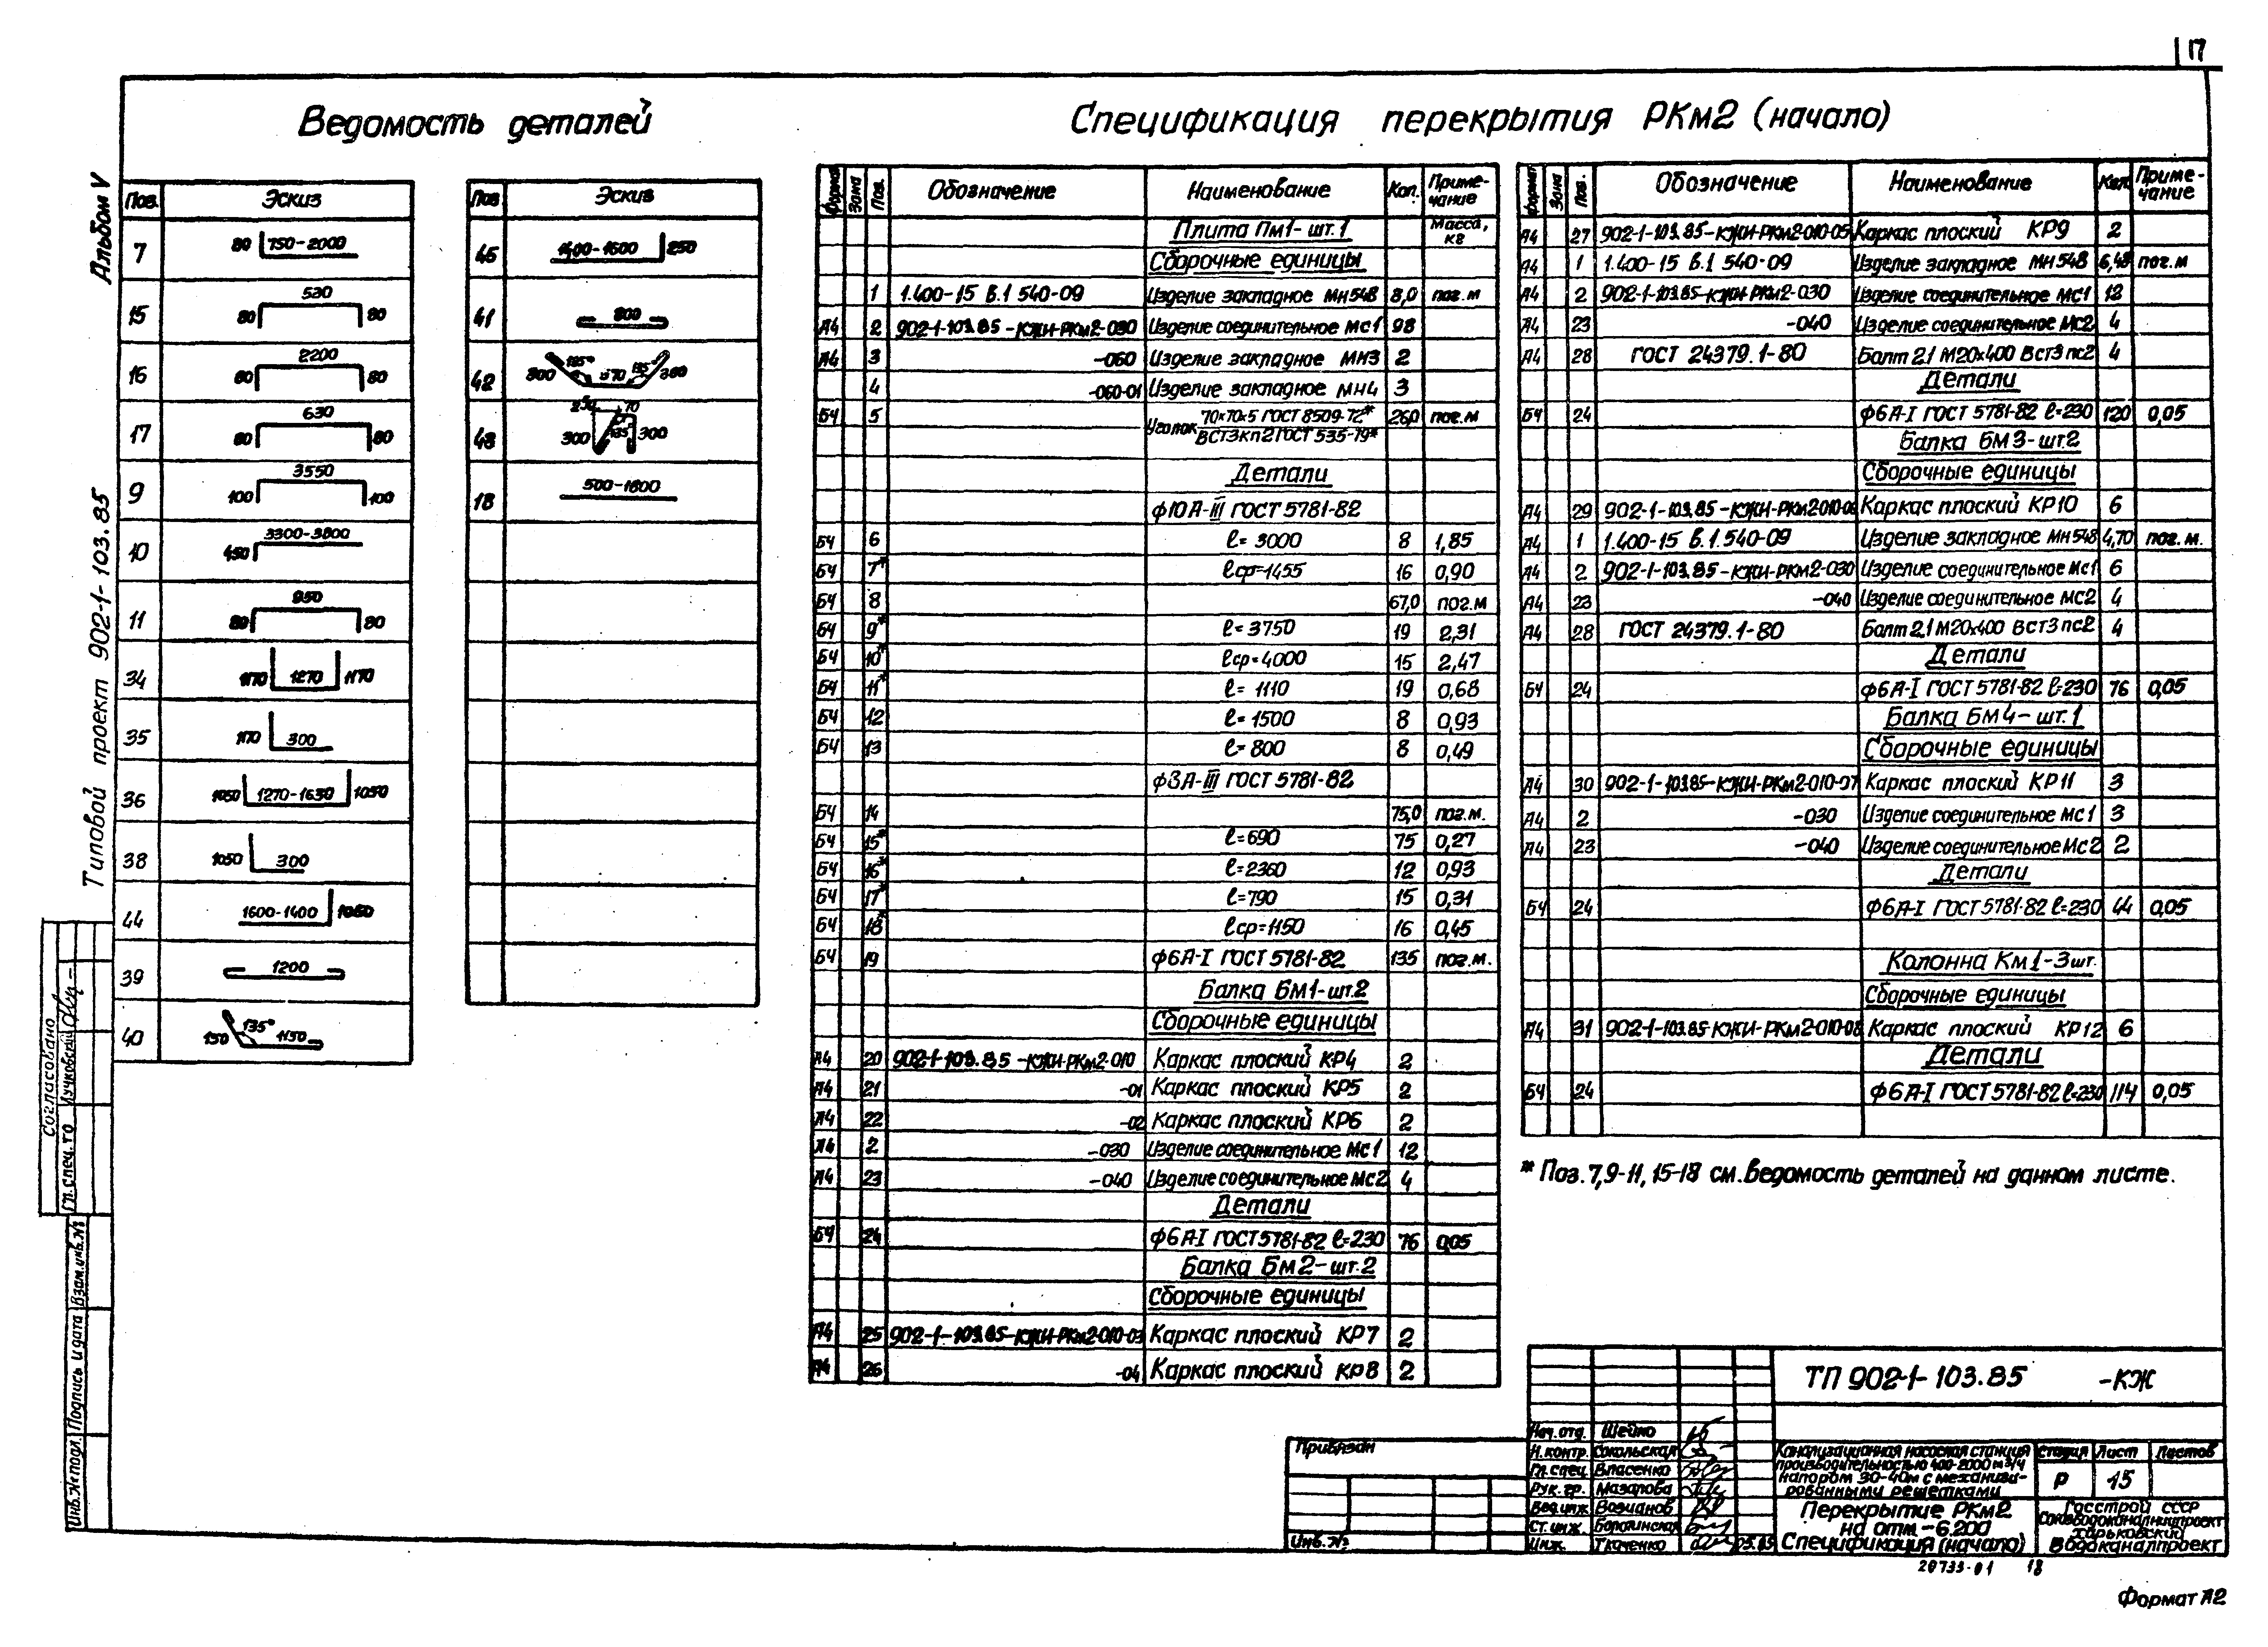 17
Ведомость деталей
Спецификация перекрытия РКм2 (начало)
Альбом V
Типовой проект 902-1-103.85
Поз. Эскиз
7 80 750-2000
15 80 530 80
16 80 2200 80
17 80 630 80
9 100 3550 100
10 450 3300-3800
11 80 950 80
34 1170 1270 1170
35 1170 300
36 1050 1270-1630 1050
38 1050 300
44 1600-1400 1050
39 1200
40 150 135° 1150
Поз Эскиз
45 1400-1600 250
41 800
42 300 135° 370 135 300
43 250 70 300 135 300
18 500-1800
Формат Зона Поз. Обозначение Наименование Кол. Примечание
Плита Пм1-шт.1 Масса, кг
Сборочные единицы
1 1.400-15 в.1 540-09 Изделие закладное МН548 8,0 пог.м
А4 2 902-1-103.85-КЖИ-РКм2-030 Изделие соединительное МС1 98
А4 3 -060 Изделие закладное МН3 2
4 -060-01 Изделие закладное МН4 3
БЧ 5 Уголок 70х70х5 ГОСТ 8509-72* ВСТ3кп2 ГОСТ 535-79* 26,0 пог.м
Детали
ф10А-III ГОСТ 5781-82
БЧ 6 ℓ=3000 8 1,85
БЧ 7* ℓср=1455 16 0,90
БЧ 8 67,0 пог.м
БЧ 9* ℓ=3750 19 2,31
БЧ 10* ℓср=4000 15 2,47
БЧ 11* ℓ=1110 19 0,68
БЧ 12 ℓ=1500 8 0,93
БЧ 13 ℓ=800 8 0,49
ф8А-III ГОСТ 5781-82
БЧ 14 75,0 пог.м.
БЧ 15* ℓ=690 75 0,27
БЧ 16* ℓ=2360 12 0,93
БЧ 17* ℓ=790 15 0,31
БЧ 18* ℓср=1150 16 0,45
БЧ 19 ф6А-I ГОСТ 5781-82 135 пог.м.
Балка Бм1-шт.2
Сборочные единицы
А4 20 902-1-103.85-КЖИ-РКм2-010 Каркас плоский КР4 2
А4 21 -01 Каркас плоский КР5 2
А4 22 -02 Каркас плоский КР6 2
А4 2 -030 Изделие соединительное МС1 12
А4 23 -040 Изделие соединительное МС2 4
Детали
БЧ 24 ф6А-I ГОСТ 5781-82 ℓ=230 76 0,05
Балка Бм2-шт.2
Сборочные единицы
А4 25 902-1-103.85-КЖИ-РКм2-010-03 Каркас плоский КР7 2
А4 26 -04 Каркас плоский КР8 2
Формат Зона Поз. Обозначение Наименование Кол. Примечание
А4 27 902-1-103.85-КЖИ-РКм2-010-05 Каркас плоский КР9 2
А4 1 1.400-15 в.1 540-09 Изделие закладное МН548 6,48 пог.м
А4 2 902-1-103.85-КЖИ-РКм2-030 Изделие соединительное МС1 12
А4 23 -040 Изделие соединительное МС2 4
А4 28 ГОСТ 24379.1-80 Болт 2.1 М20х400 ВСт3пс2 4
Детали
БЧ 24 ф6А-I ГОСТ 5781-82 ℓ=230 120 0,05
Балка Бм3-шт.2
Сборочные единицы
А4 29 902-1-103.85-КЖИ-РКм2-010-06 Каркас плоский КР10 6
А4 1 1.400-15 в.1.540-09 Изделие закладное МН548 4,70 пог.м.
А4 2 902-1-103.85-КЖИ-РКм2-030 Изделие соединительное МС1 6
А4 23 -040 Изделие соединительное МС2 4
А4 28 ГОСТ 24379.1-80 Болт 2.1 М20х400 ВСт3пс2 4
Детали
БЧ 24 ф6А-I ГОСТ 5781-82 ℓ=230 76 0,05
Балка Бм4-шт.1
Сборочные единицы
А4 30 902-1-103.85-КЖИ-РКм2-010-07 Каркас плоский КР11 3
А4 2 -030 Изделие соединительное МС1 3
А4 23 -040 Изделие соединительное МС2 2
Детали
БЧ 24 ф6А-I ГОСТ 5781-82 ℓ=230 44 0,05
Колонна Км1-3шт.
Сборочные единицы
А4 31 902-1-103.85-КЖИ-РКм2-010-08 Каркас плоский КР12 6
Детали
БЧ 24 ф6А-I ГОСТ 5781-82 ℓ=230 114 0,05
* Поз. 7,9-11, 15-18 см. Ведомость деталей на данном листе.
Согласовано
Гл. спец. ТО Лучковский
Инв.№ подл. Подпись и дата Взам.инв.№
Привязан
Инв.№
ТП 902-1-103.85 -КЖ
Нач. отд. Шейко
Н. контр. Сокольская
Гл. спец Власенко
Рук. гр. Мазалова
Вед. инж Возианов
Ст. инж.
Инж. Ткаченко 05.85
Канализационная насосная станция
производительностью 400-2000 м³/ч
напором 30-40м с механизи-
рованными решетками
Стадия Лист Листов
Р 15
Перекрытие РКм2
на отм.-6.200
Спецификация (начало)
Госстрой СССР
Союзводоканалниипроект
Харьковский
Водоканалпроект
20733-01 18
Формат А2